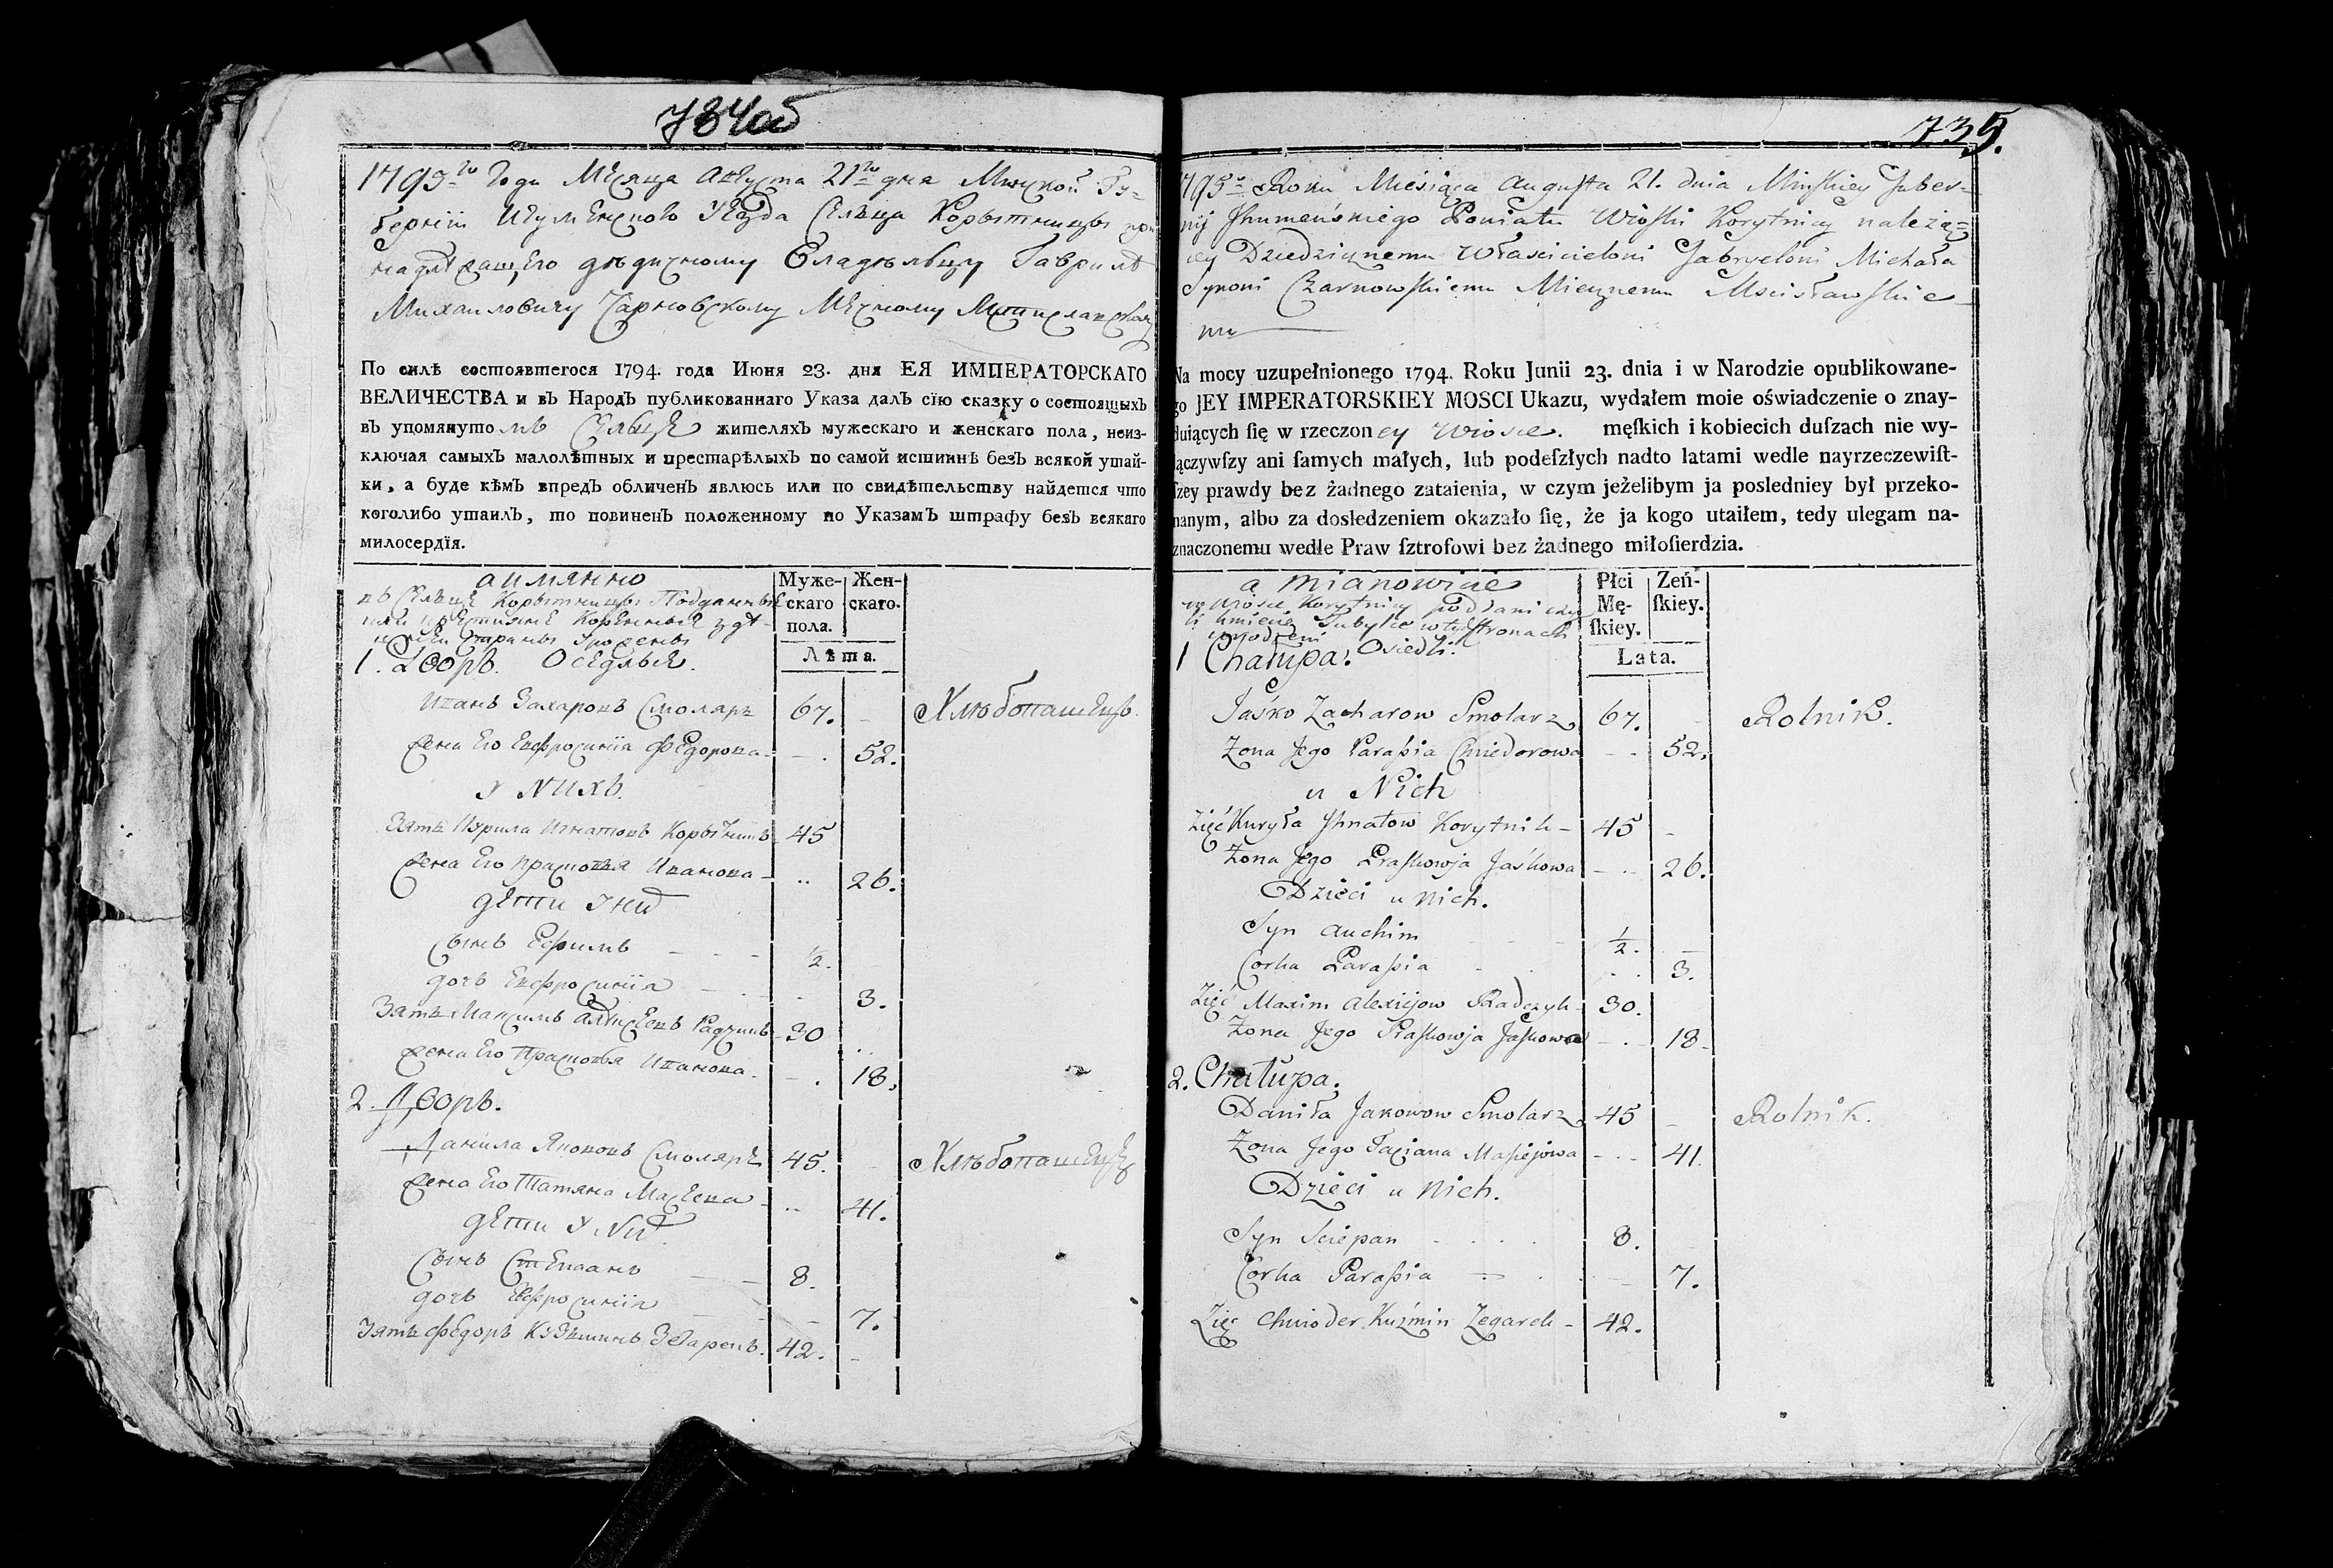 734об
1795го Года Месяца Августа 21го дня Минской Гу-
бернии Игуменского уезда Сельца Корытницы при
надлежащего дедичному Владельцу Гаврилѣ
Михаиловичу Чарновскому Мечному Мстиславскому
По силѣ состоявшегося 1794. года Июня 23. дня ЕЯ ИМПЕРАТОРСКАГО
ВЕЛИЧЕСТВА и въ Народъ публикованнаго Указа далъ сїю сказку о состоящыхъ
въ упомянутомъ Сельце жителяхъ мужескаго и женскаго пола, неиз-
ключая самыхъ малолѣтных и престарѣлыхъ по самой истиннѣ безъ всякой утай-
ки, а буде кѣмъ впредъ обличенъ явлюсь или по свидѣтельству найдется что
коголибо утаилъ, то повиненъ положенному по Указамъ штрафу безъ всякаго
милосердїя.
а имянно
въ Сельце Корытницы Подданные
или крестьяне Коренные здѣ-
Муже-
скаго
пола.
Жен-
скаго.
Лѣта.
1. Дворъ. Оседлые.
Иванъ Захаровъ Смоляръ 67. Хлѣбопашецъ.
Жена Его Евфросинiя Федорова 52.
У Нихъ.
Зять Курила Игнатовъ Корытникъ 45
Жена Его Прасковья Иванова 26.
дети у них
Сынъ Ефимъ 1/2.
дочь Евфросинiя 3.
Зять Максимъ Алексеевъ Радчикъ 30
Жена Его Прасковья Иванова 18.
2. Дворъ.
Данила Якововъ Смоляръ 45. Хлѣбопашецъ
Жена Его Татяна Масеева 41.
дети у Них
Сынъ Степанъ 8.
дочь Евфросинiя 7.
Зять Федоръ Кузьминъ Зегарекъ 42.
735.
1795o Roku Miesiąca Augusta 21. dnia Minskiey Guber-
nij Jhumeńskiego Powiatu Wioski Korytnicy należą-
cey Dziedzicznemu Właścicielowi Gabryelowi Michała
Synowi Czarnowskiemu Miecznemu Mscisławskie-
mu
Na mocy uzupełnionego 1794. Roku Junii 23. dnia i w Narodzie opublikowane-
go JEY IMPERATORSKIEY MOSCI Ukazu, wydałem moie oświadczenie o znay-
duiących ſię w rzeczoney Wiosce. męſkich i kobiecich duſzach nie wy-
łączywſzy ani ſamych małych, lub podeſzłych nadto latami wedle nayrzeczewiſt-
ſzey prawdy bez żadnego zataienia, w czym jeżelibym ja posledniey był przeko-
nanym, albo za dosledzeniem okazało ſię, że ja kogo utaiłem, tedy ulegam na-
znaczonemu wedle Praw ſztrofowi bez żadnego miłoſierdzia.
a mianowicie
w wiosce Korytnicy poddani czy
li kmiecie Tubylce w tych stronach
urodzeni
Płci
Mę-
ſkiey.
Zeń-
ſkiey.
Lata.
1 Chałupa. Osiedli.
Jaśko Zacharow Smolarz 67. Rolnik.
Zona Jego Parasia Chwiedorowa 52.
u Nich
Zięć Kuryła Jhnatow Korytnik 45
Zona Jego Praskowja Jaśkowa 26.
Dzieci u Nich.
Syn Auchim 1/2.
Corka Parasia 3.
Zięć Maxim Alexiejow Radczyk 30.
Zona Jego Praskowja Jaskowa 18
2. Chałupa.
Daniła Jakowow Smolarz 45 Rolnik.
Zona Jego Taciana Masiejowa 41.
Dzieci u Nich.
Syn Sciepan 8.
Corka Parasia 7.
Zięć Chwioder Kuźmin Zegarek 42.